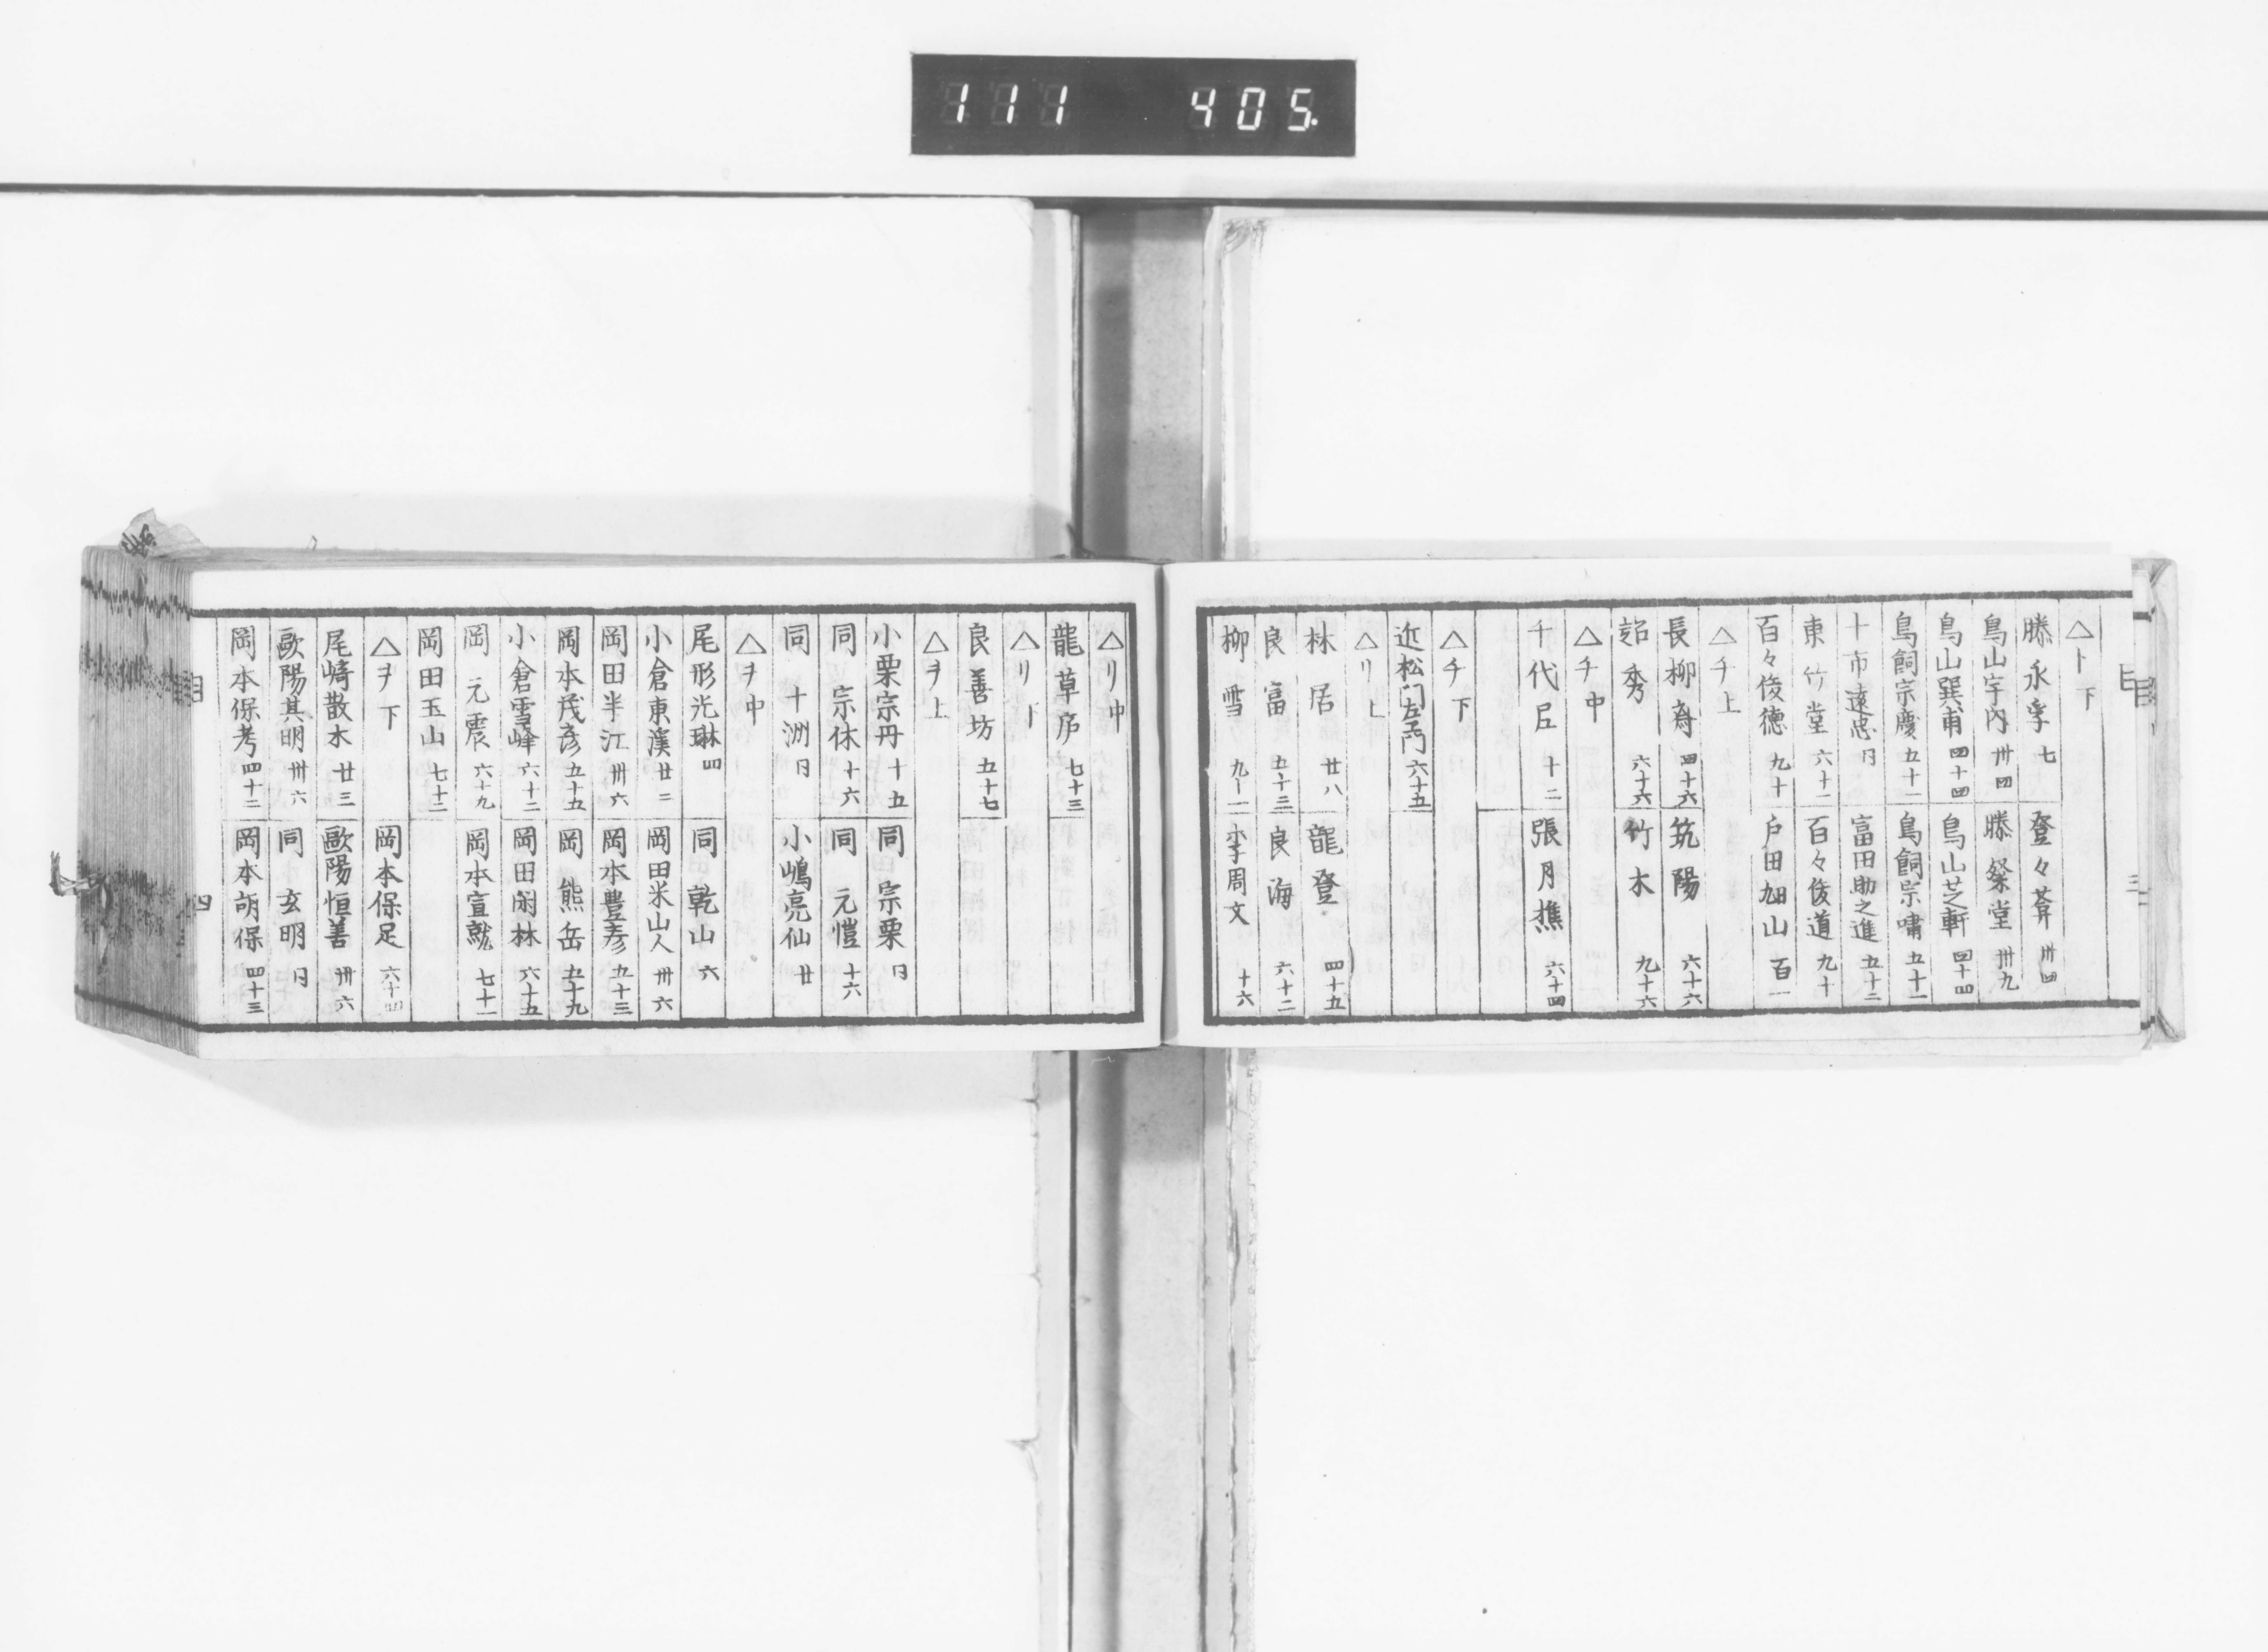 111 405.
△ト下
滕永孚 七 登々葊 卅四
鳥山宇内 卅四 滕祭堂 卅九
鳥山巽甫 四十四 鳥山芝軒 四十四
鳥飼宗慶 五十一 鳥飼宗嘯 五十一
十市遠忠 同 富田助之進 五十二
東竹堂 六十二 百々俊道 九十
百々俊徳 九十 戸田旭山 百一
△チ上
長柳 四十六 筑陽 六十六
超秀 六十六 竹木 九十六
△チ中
千代尼 十二 張月樵 六十四
△チ下
近松门左门 六十五
△リ上
林居 廿八 龍登 四十五
良富 五十三 良海 六十二
柳雪 李周文 十六
△リ中
龍草庐 七十三
△リ下
良善坊 五十七
△ヲ上
小栗宗丹 十五 同宗栗 同
同宗休 十六 同元愷 十六
同十洲 同 小嶋亮仙 廿
△ヲ中
尾形光琳 四 同乾山 六
小倉東溪 廿二 岡田米山人 卅六
岡田半江 卅六 岡本豊彦 九十三
岡本茂彦 五十五 岡熊岳 五十九
小倉雪峰 六十二 岡田閑林 六十五
岡元震 六十九 岡本宣就 七十一
岡田玉山 七十二
△ヲ下
岡本保足 六十四
尾﨑散木 廿三 歐陽恒善 卅六
歐陽其明 卅六 同玄明 同
岡本保考 四十二 岡本胡保 四十三
目 四